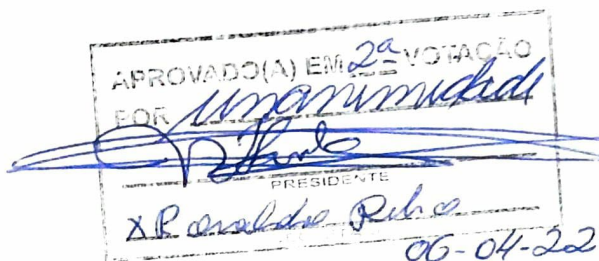 APROVADO(A) EM 2ª VOTAÇÃO
POR unanimidade
PRESIDENTE
X
06-04-22